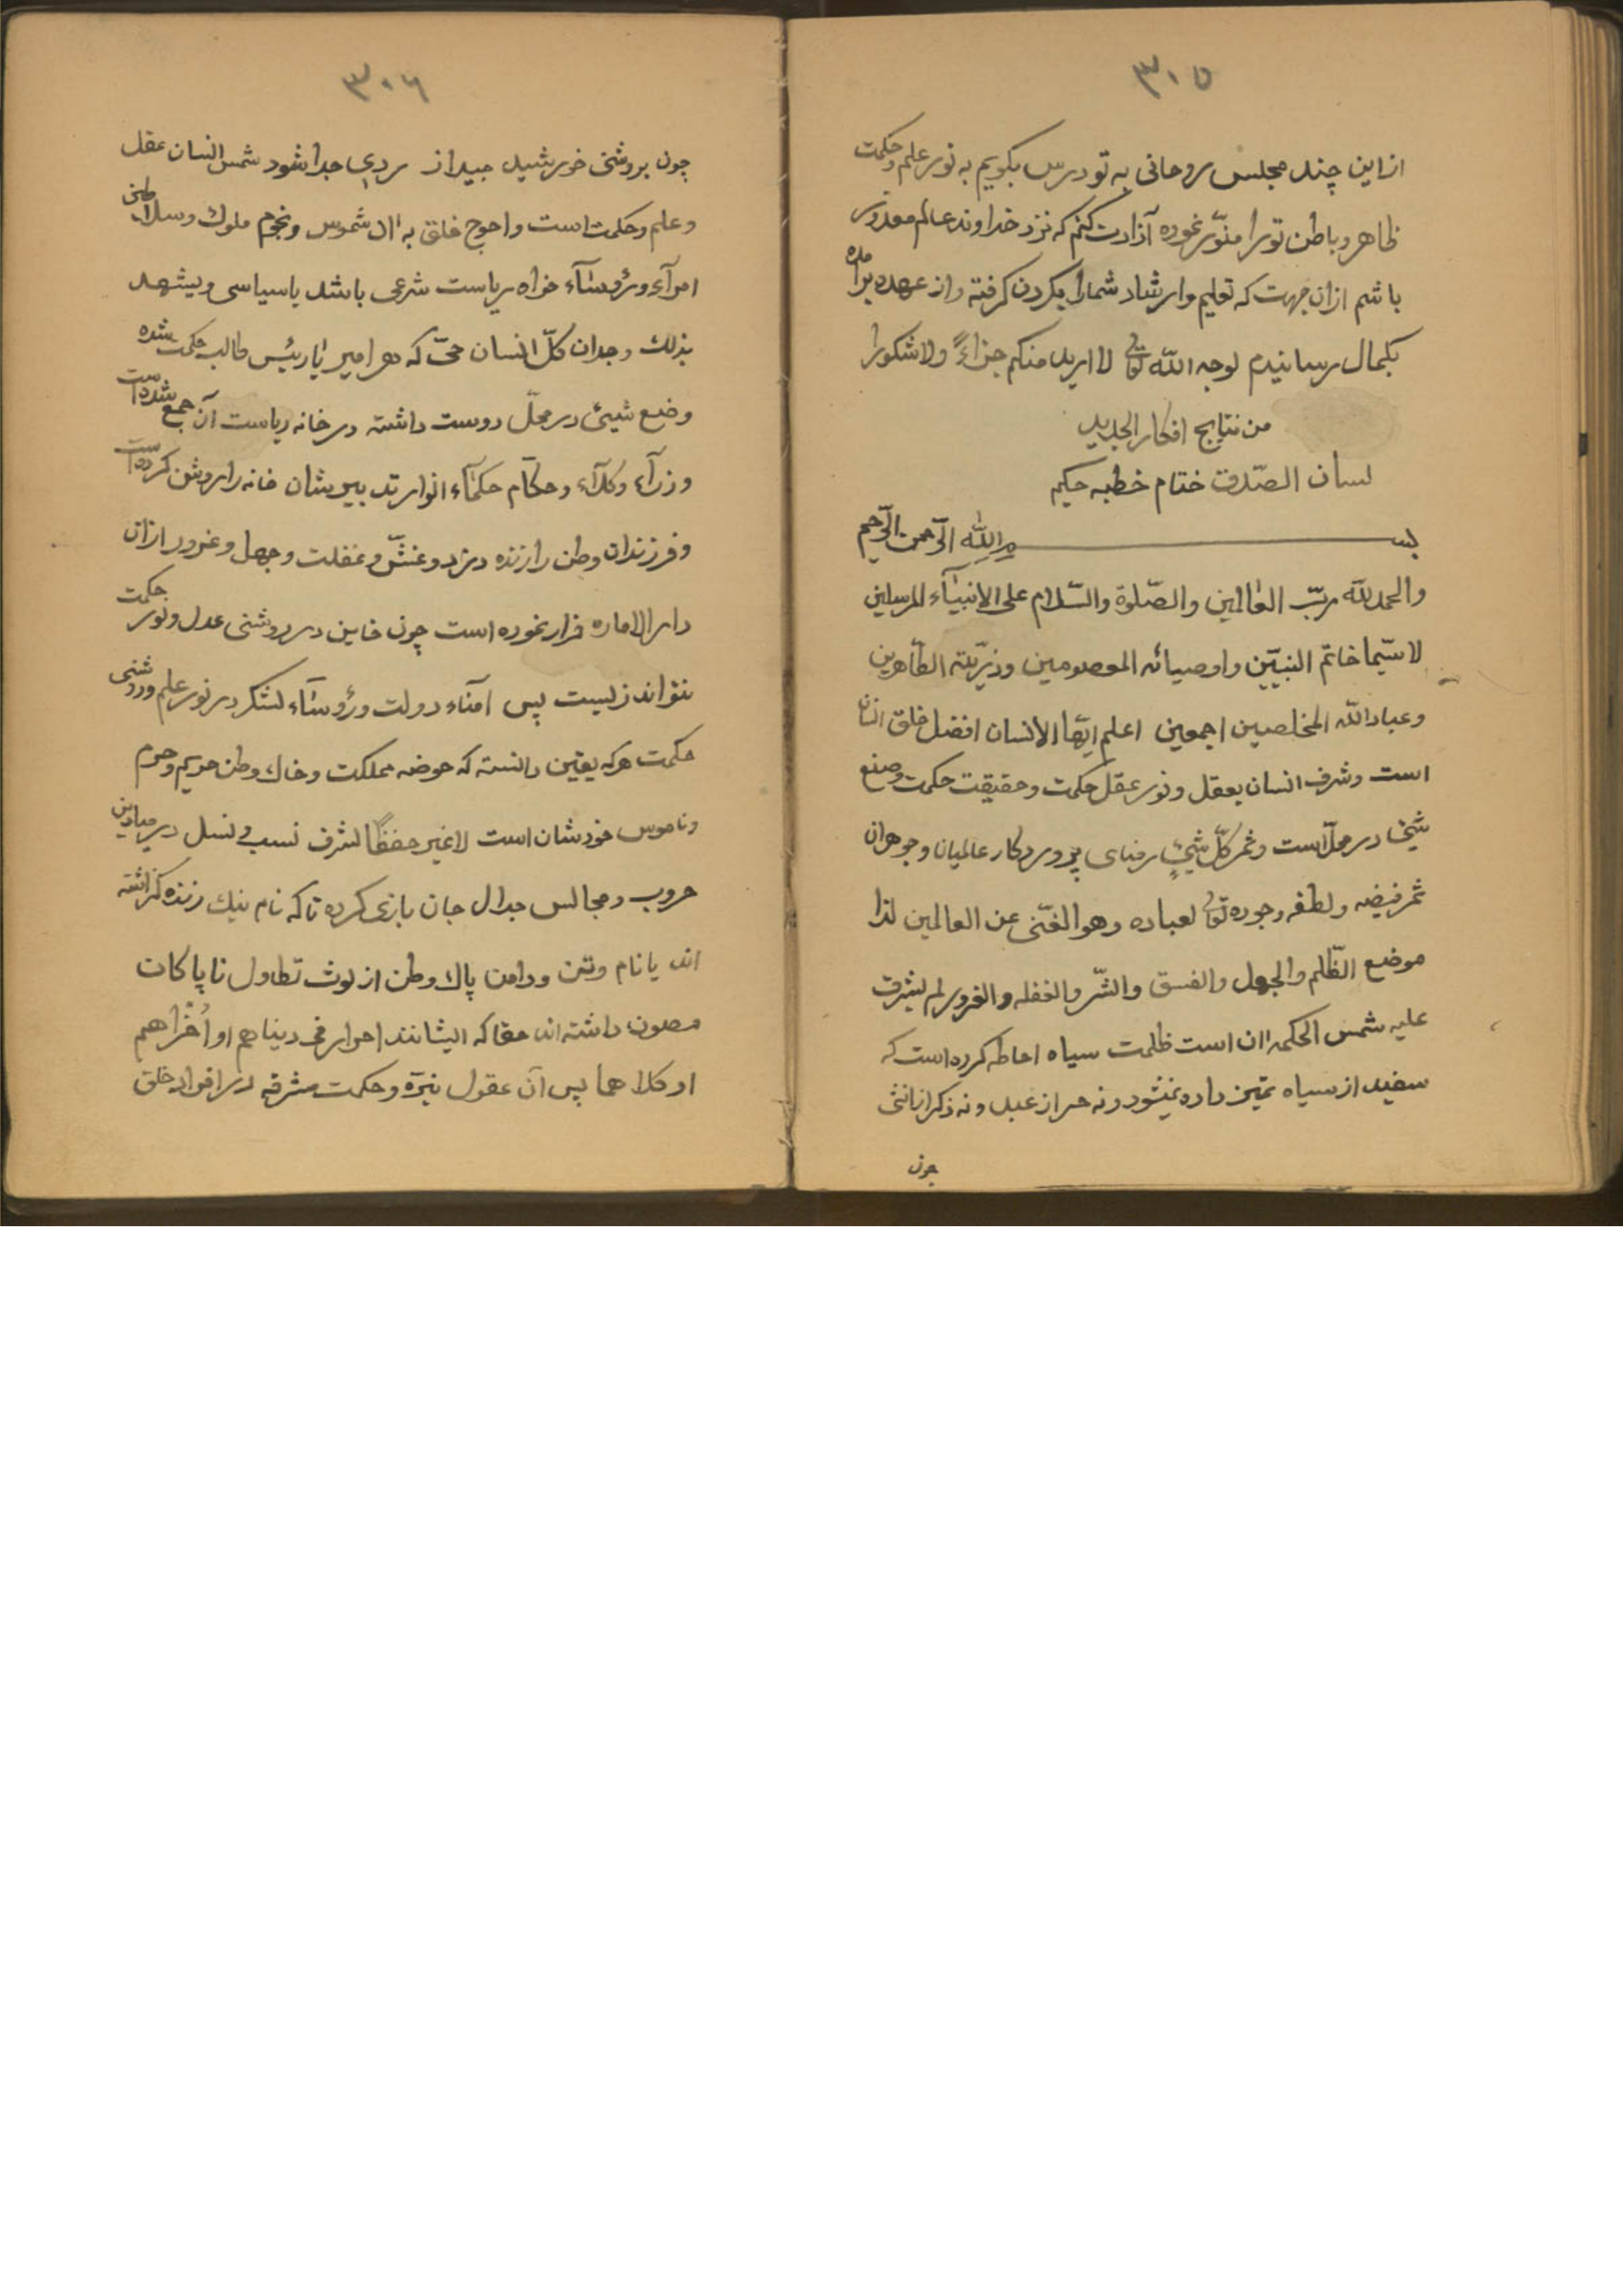 ۳۰۵
ازاین چند مجلس روحانی به تو درس بگویم به نور علم وحکمت
ظاهر وباطن تو را منوّر نموده آزادت کنم که نزد خداوند عالم معذور
باشم ازان جهت که تعلیم وارشاد شمارا بگردن گرفته واز عهده برامده
بکمال رسانیدم لوجه اللّه تعالی لا ارید منکم جزاءً ولا شکورا
من نتایج افکار الجدید
لسان الصّدق ختام خطبه حکیم
بسم اللّهِ الرّحمن الرّحیم
والحمدللّه ربّ العالمین والصّلوة والسّلام علی الانبیآء المرسلین
لاسیّما خاتم النبیّین واوصیائه المعصومین وذرّیّته الطّاهرین
وعباد اللّه المخلصین اجمعین اعلم ایّها الانسان افضل خلق انسان
است وشرف انسان بعقل ونور عقل حکمت وحقیقت حکمت وضع
شیئ در محلّ است وثمر کلّ شیئٍ رضای پروردکار عالمیان وجوهران
ثمر فیضه ولطفه وجوده تعالی لعباده وهو الغنّی عن العالمین لذا
موضع الظّلم والجهل والفسق والشّر والغفله والغرور لم یشرق
علیه شمس الحکمه ان است ظلمت سیاه احاطه کرده است که
سفید از سیاه تمیز داده نمیشود ونه حر از عبد ونه ذکر از انثی
چون
۳۰۶
چون بروشنی خورشید جید از ردی جدا شود شمس انسان عقل
وعلم وحکمت است واحوج خلق به ان شموس ونجوم ملوك وسلاطین
امرآء ورؤسآء خواه ریاست شرعی باشد یا سیاسی ویشهد
بذلك وجدان کلّ انسان حیّ که هر امیر یا رئیس طالب حکمت شده
وضع شیئ در محلّ دوست داشته در خانه ریاست آن جمع شده است
وزرآء وکلآء وحکّام حکمآء انوار تدبیرشان خانه را روشن کرده است
وفرزندان وطن را زنده دزد وغشّ وغفلت وجهل وغرور ازان
دار الاماره فرار نموده است چون خاین در روشنی عدل ونور حکمت
نتواند زیست پس امناء دولت ورؤسآء لشکر در نور علم وروشنی
حکمت هرکه یقین دانسته که حوضه مملکت وخاك وطن حریم وحرم
وناموس خودشان است لاغیر حفظًا لشرف نسب ونسل در میادین
حروب ومجالس جدال جان بازی کرده تا که نام نیك زنده گذاشته
اند یا نام وتن ودامن پاك وطن از لوث تطاول ناپاکان
مصون داشته اند حقا که ایشانند احرار فی دیناهم او اُخْراهم
او کلاهما پس آن عقول نیّره وحکمت مشرقه در افراد خلق